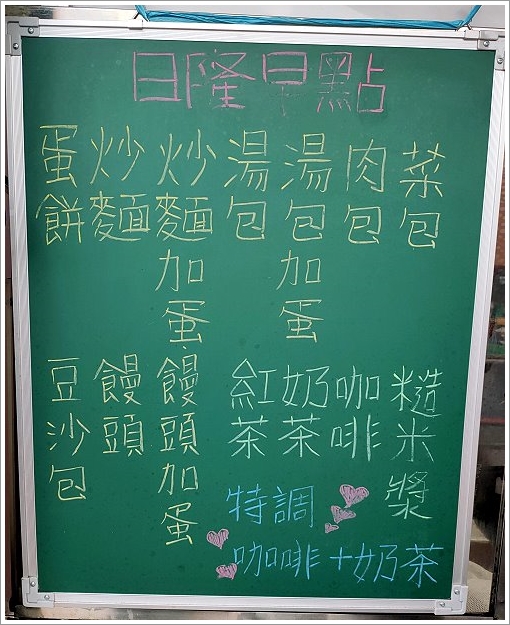 日隆早點
菜包
肉包
湯包加蛋
湯包
炒麵加蛋
炒麵
蛋餅
糙米漿
咖啡
奶茶
紅茶
饅頭加蛋
饅頭
豆沙包
特調
咖啡+奶茶